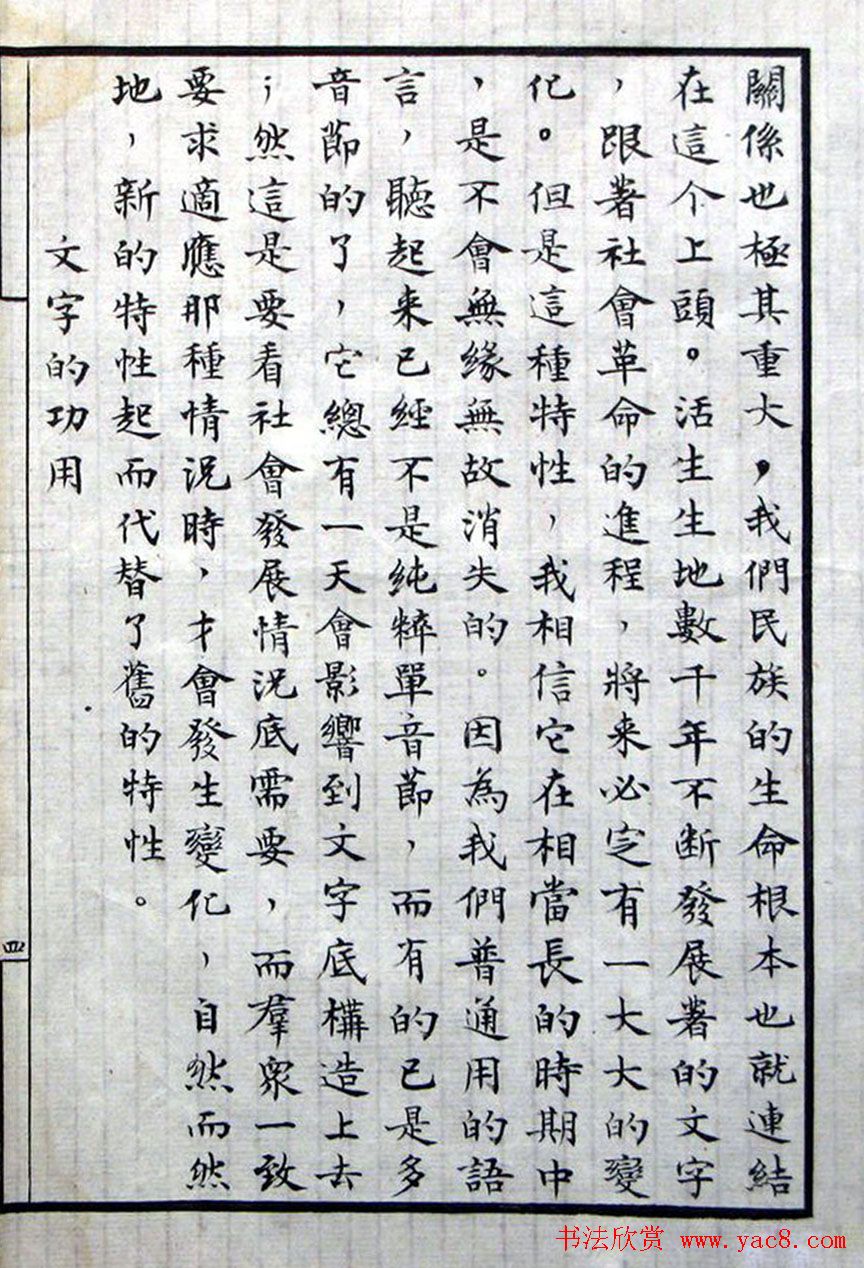 關係也極其重大，我們民族的生命根本也就連結
在這个上頭。活生生地數千年不断發展著的文字
，跟著社會革命的進程，將来必定有一大大的變
化。但是這種特性，我相信它在相當長的時期中
，是不會無緣無故消失的。因為我們普通用的語
言，聽起来已經不是純粹單音節，而有的已是多
音節的了，它總有一天會影響到文字底構造上去
；然這是要看社會發展情況底需要，而羣衆一致
要求適應那種情況時，才會發生變化，自然而然
地，新的特性起而代替了舊的特性。
文字的功用
四
书法欣赏 www.yac8.com